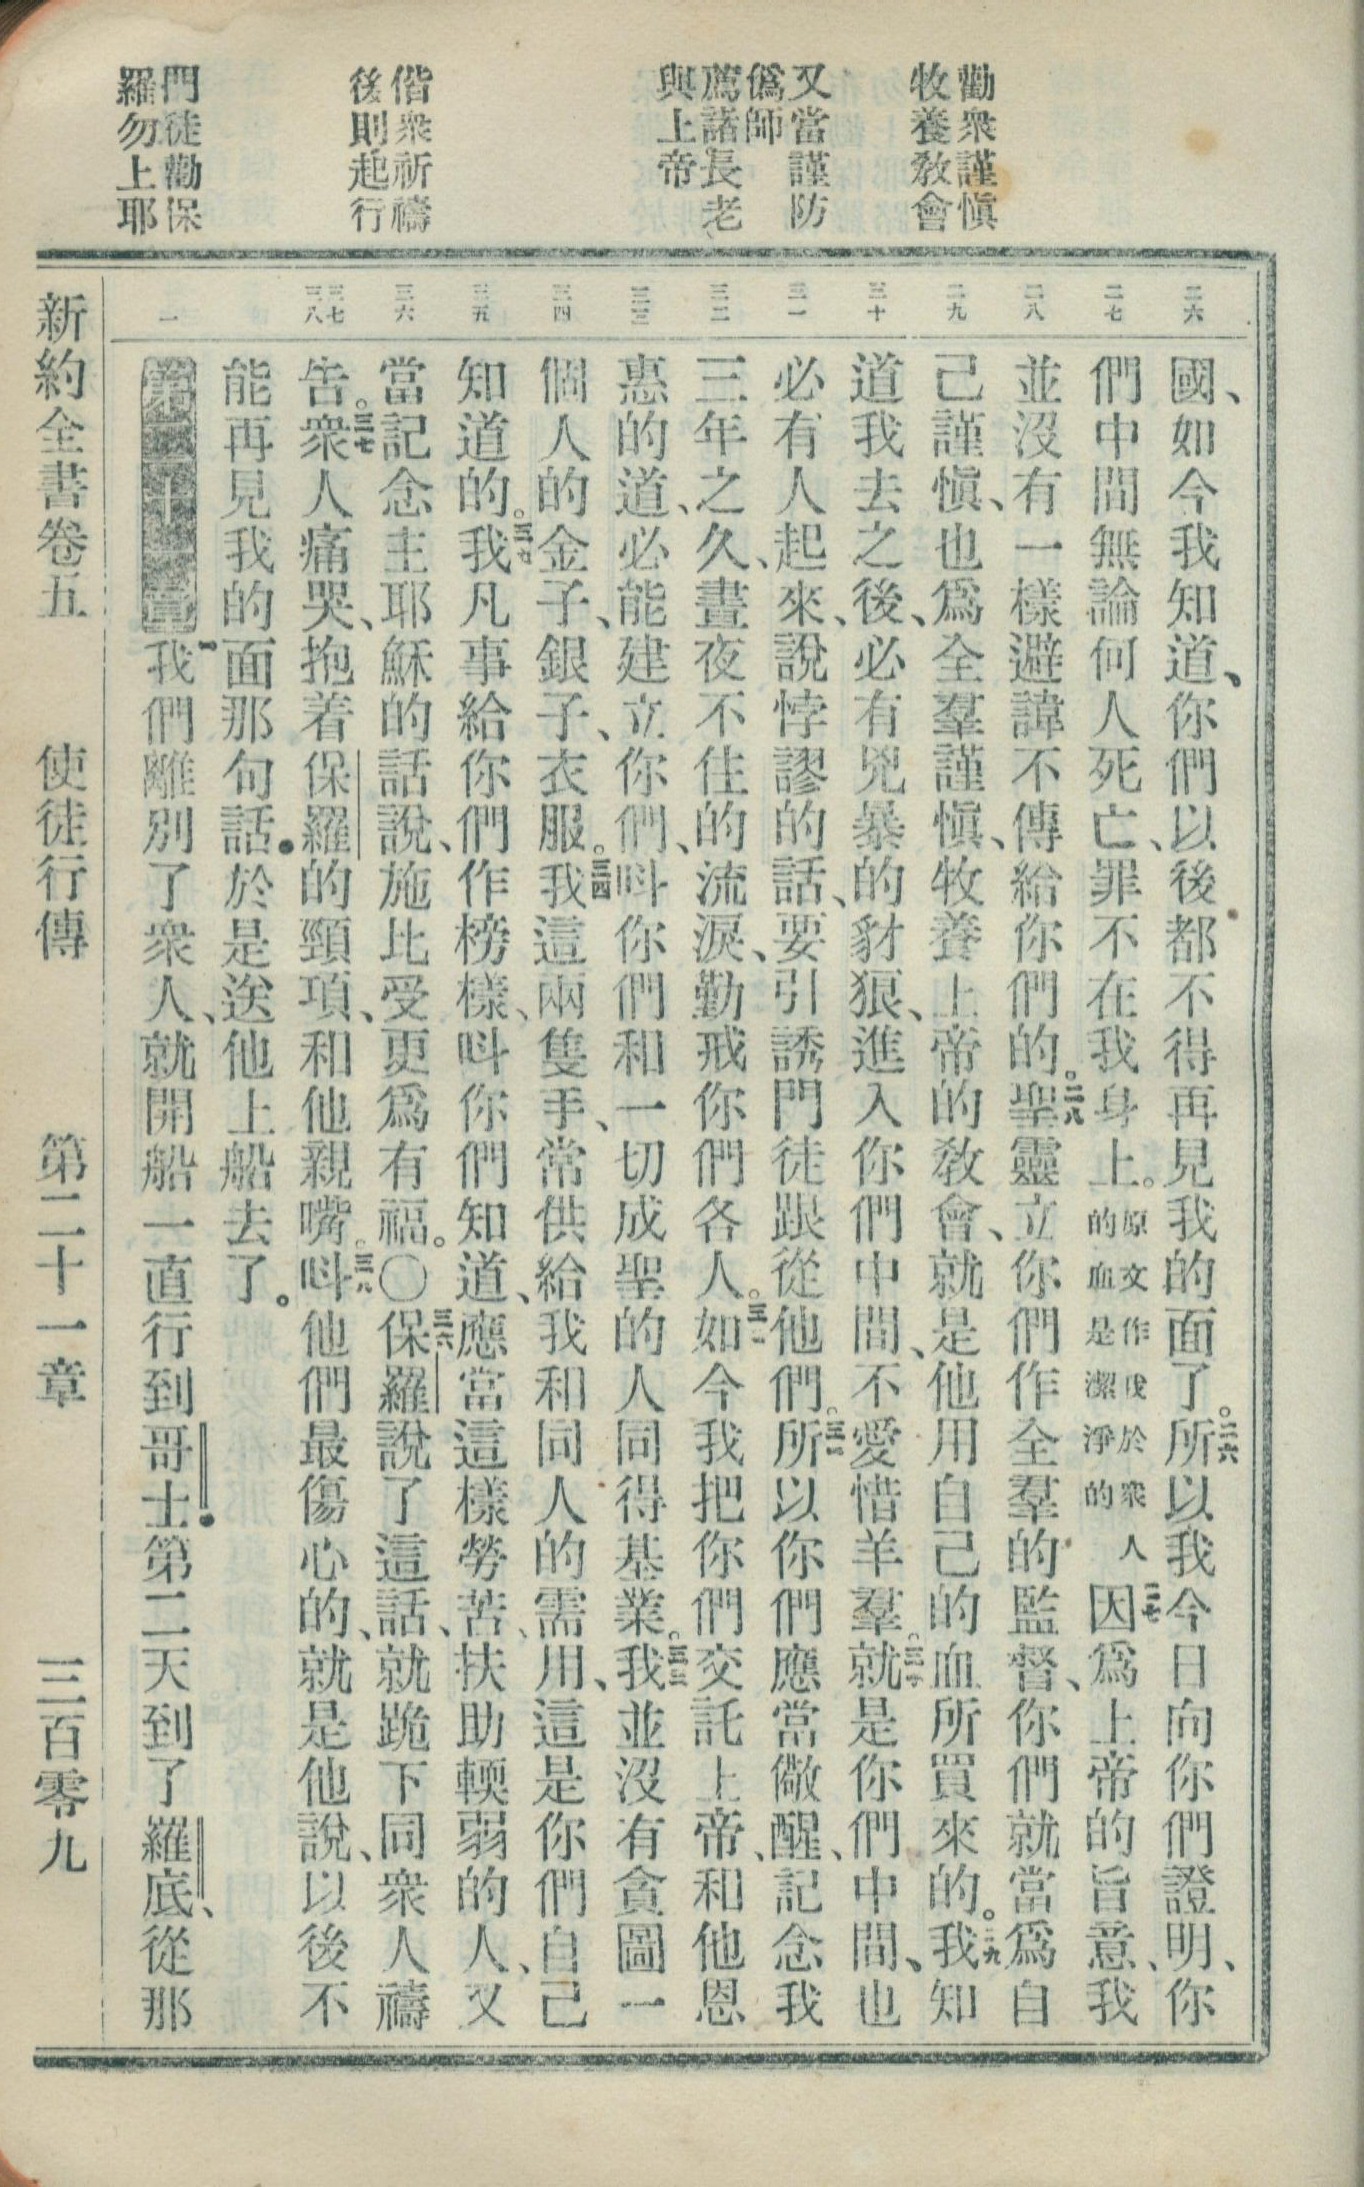 勸衆謹愼
牧養敎會
又當謹防
僞師
薦諸長老
與上帝
偕衆祈禱
後則起行
門徒勸保
羅勿上耶
二六
二七
二八
二九
三十
三一
三二
三三
三四
三五
三六
三七
三八
一
國、如今我知道、你們以後都不得再見我的面了。二六所以我今日向你們證明、你
們中間無論何人死亡、罪不在我身上。原文作我於衆人的血是潔淨的二七因爲上帝的旨意、我
並沒有一樣避諱不傳給你們的。二八聖靈立你們作全羣的監督、你們就當爲自
己謹愼、也爲全羣謹愼、牧養上帝的敎會、就是他用自己的血所買來的。二九我知
道我去之後、必有兇暴的豺狼、進入你們中間、不愛惜羊羣。三十就是你們中間、也
必有人起來、說悖謬的話、要引誘門徒跟從他們。三一所以你們應當儆醒、記念我
三年之久、晝夜不住的流淚、勤戒你們各人。三二如今我把你們交託上帝、和他恩
惠的道、必能建立你們、呌你們和一切成聖的人同得基業。三三我並沒有貪圖一
個人的金子、銀子、衣服。三四我這兩隻手、常供給我和同人的需用、這是你們自己
知道的。三五我凡事給你們作榜樣、呌你們知道、應當這樣勞苦、扶助輭弱的人、又
當記念主耶穌的話說、施比受更爲有福。〇三六保羅說了這話、就跪下同衆人禱
告。三七衆人痛哭、抱着保羅的頸項、和他親嘴。三八呌他們最傷心的、就是他說、以後不
能再見我的面那句話．於是送他上船去了。
第二十一章一我們離別了衆人、就開船一直行到哥士．第二天到了羅底、從那
新約全書卷五 使徒行傳 第二十一章 三百零九